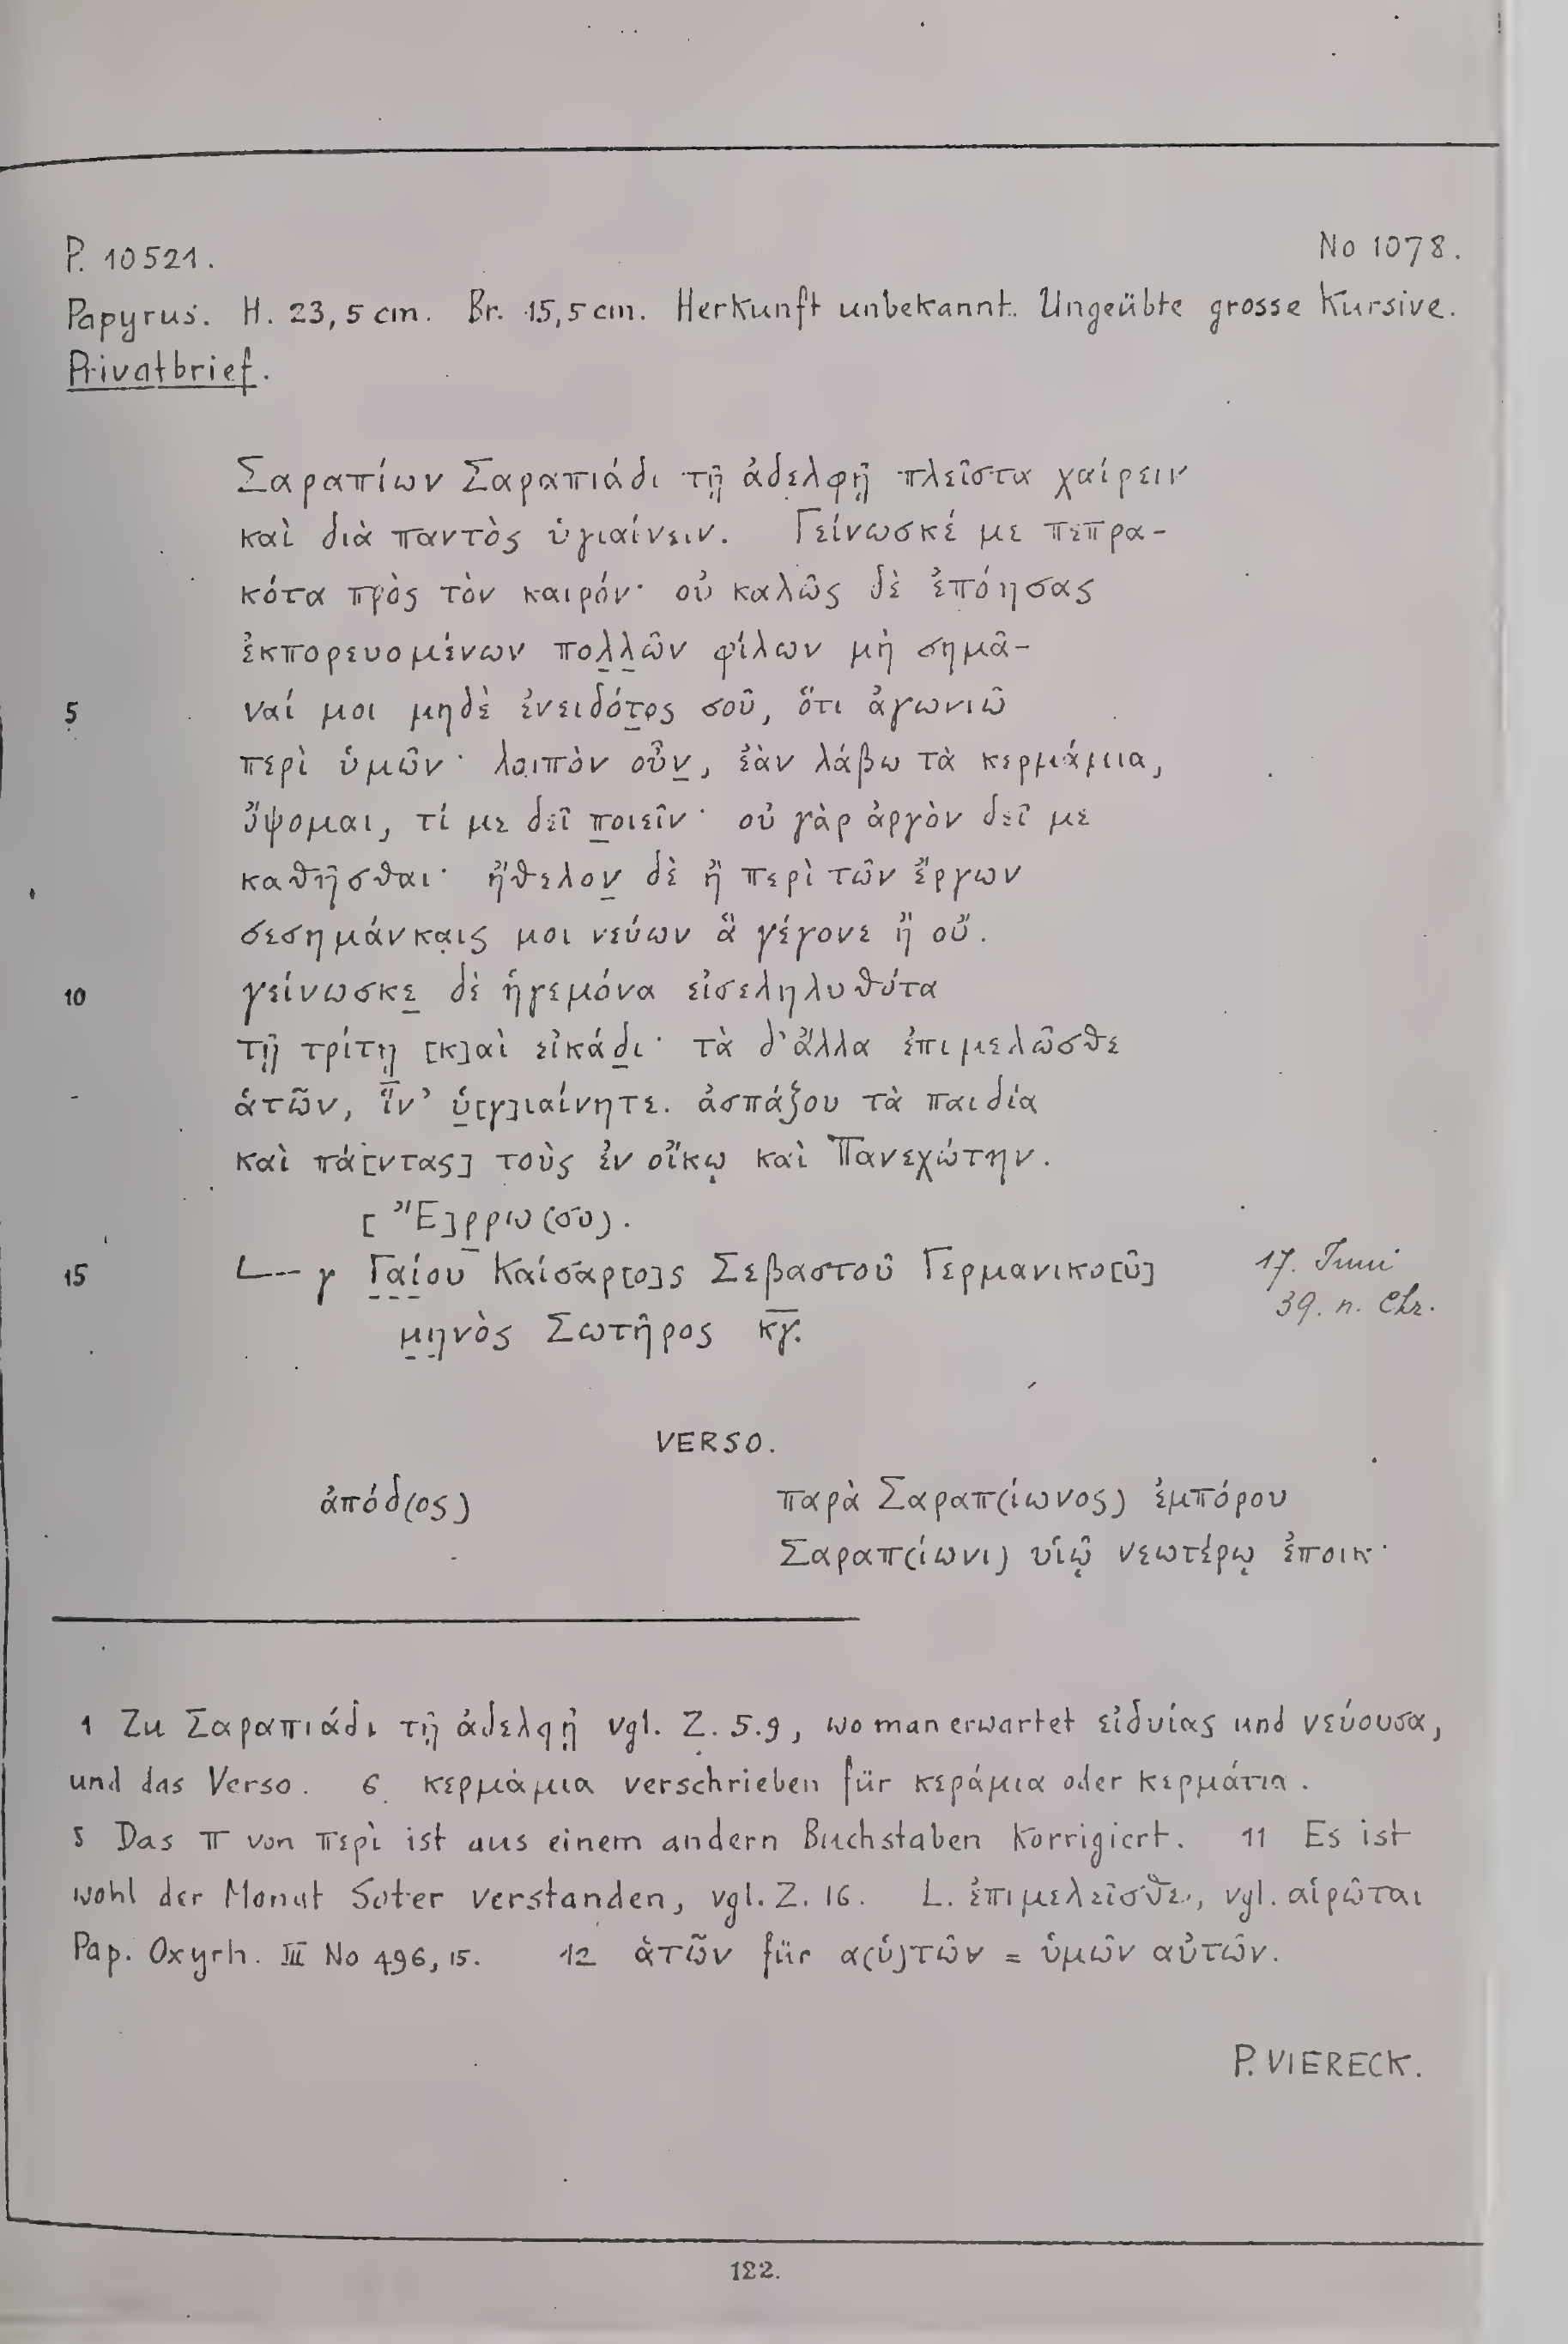 P. 10521.
No 1078.
Papyrus. H. 23,5 cm. Br. 15,5 cm. Herkunft unbekannt. Ungeübte grosse Kursive.
Privatbrief.
Σαραπίων Σαραπιάδι τῇ ἀδελφῇ πλεῖστα χαίρειν
καὶ διὰ παντὸς ὑγιαίνειν. Γείνωσκέ με πεπρα-
κότα πρὸς τὸν καιρόν· οὐ καλῶς δὲ ἐπόησας
ἐκπορευομένων πολ̣λ̣ῶν φίλων μὴ σημᾶ-
5 ναί μοι μηδὲ ἐνειδότ̣ος σοῦ, ὅτι ἀγωνιῶ
περὶ ὑμῶν· λοιπὸν οὖν̣, ἐὰν λάβω τὰ κερμάμια,
ὄψομαι, τί με δεῖ π̣οιεῖν· οὐ γὰρ ἀργὸν δεῖ με
καθῆσθαι· ἤθελον̣ δὲ ἢ περὶ τῶν ἔργων
σεσημάνκαις μοι νεύων ἃ γέγονε ἢ οὔ.
10 γείνωσκε̣ δὲ ἡγεμόνα εἰσεληλυθότα
τῇ τρίτῃ [κ]αὶ εἰκάδ̣ι· τὰ δ' ἄλλα ἐπιμελῶσθε
ἁτῶν, ἵν' ὑ̣[γ]ιαίνητε. ἀσπάζου τὰ παιδία
καὶ πά[ντας] τοὺς ἐν οἴκῳ καὶ Πανεχώτην.
[Ἔ]ρ̣ρω(σο).
15 L-- γ Γ̣α̣ί̣ου Καίσαρ[ο]ς Σεβαστοῦ Γερμανικο[ῦ]
17. Juni
39. n. Chr.
μ̣η̣νὸς Σωτῆρος κγ.
VERSO.
ἀπόδ(ος) παρὰ Σαραπ(ίωνος) ἐμπόρου
Σαραπ(ίωνι) υἱῷ νεωτέρῳ ἐποικ·
1 Zu Σαραπιάδι τῇ ἀδελφῇ vgl. Z. 5.9, wo man erwartet εἰδυίας und νεύουσα,
und das Verso. 6 κερμάμια verschrieben für κεράμια oder κερμάτια.
5 Das π von περὶ ist aus einem andern Buchstaben korrigiert. 11 Es ist
wohl der Monat Soter verstanden, vgl. Z. 16. L. ἐπιμελεῖσθε, vgl. αἱρῶται
Pap. Oxyrh. III No 496, 15. 12 ἁτῶν für α(ὑ)τῶν = ὑμῶν αὐτῶν.
P. VIERECK.
122.